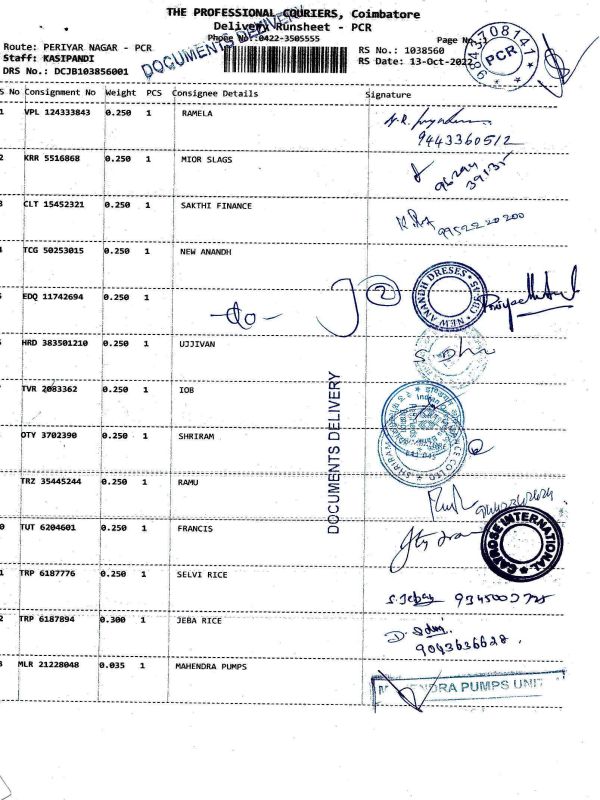 THE PROFESSIONAL COURIERS, Coimbatore
Delivery Runsheet - PCR
Phone No.:0422-3505555
Page No.:1
DOCUMENTS DELIVERY
Route: PERIYAR NAGAR - PCR
RS No.: 1038560
Staff: KASIPANDI
RS Date: 13-Oct-2022
DRS No.: DCJB103856001
9843708141
PCR
S No Consignment No Weight PCS Consignee Details Signature
1 VPL 124333843 0.250 1 RAMELA
9443360512
2 KRR 5516868 0.250 1 MIOR SLAGS
96244
39135
3 CLT 15452321 0.250 1 SAKTHI FINANCE
9952220200
TCG 50253015 0.250 1 NEW ANANDH
NEW ANANDH DRESES
EDQ 11742694 0.250 1
-do- 2
HRD 383501210 0.250 1 UJJIVAN
TVR 2083362 0.250 1 IOB
DOCUMENTS DELIVERY
OTY 3702390 0.250 1 SHRIRAM
TRZ 35445244 0.250 1 RAMU
0 TUT 6204601 0.250 1 FRANCIS
INTERNATIONAL
1 TRP 6187776 0.250 1 SELVI RICE
2 TRP 6187894 0.300 1 JEBA RICE
9043636628
3 MLR 21228048 0.035 1 MAHENDRA PUMPS
PUMPS UNIT